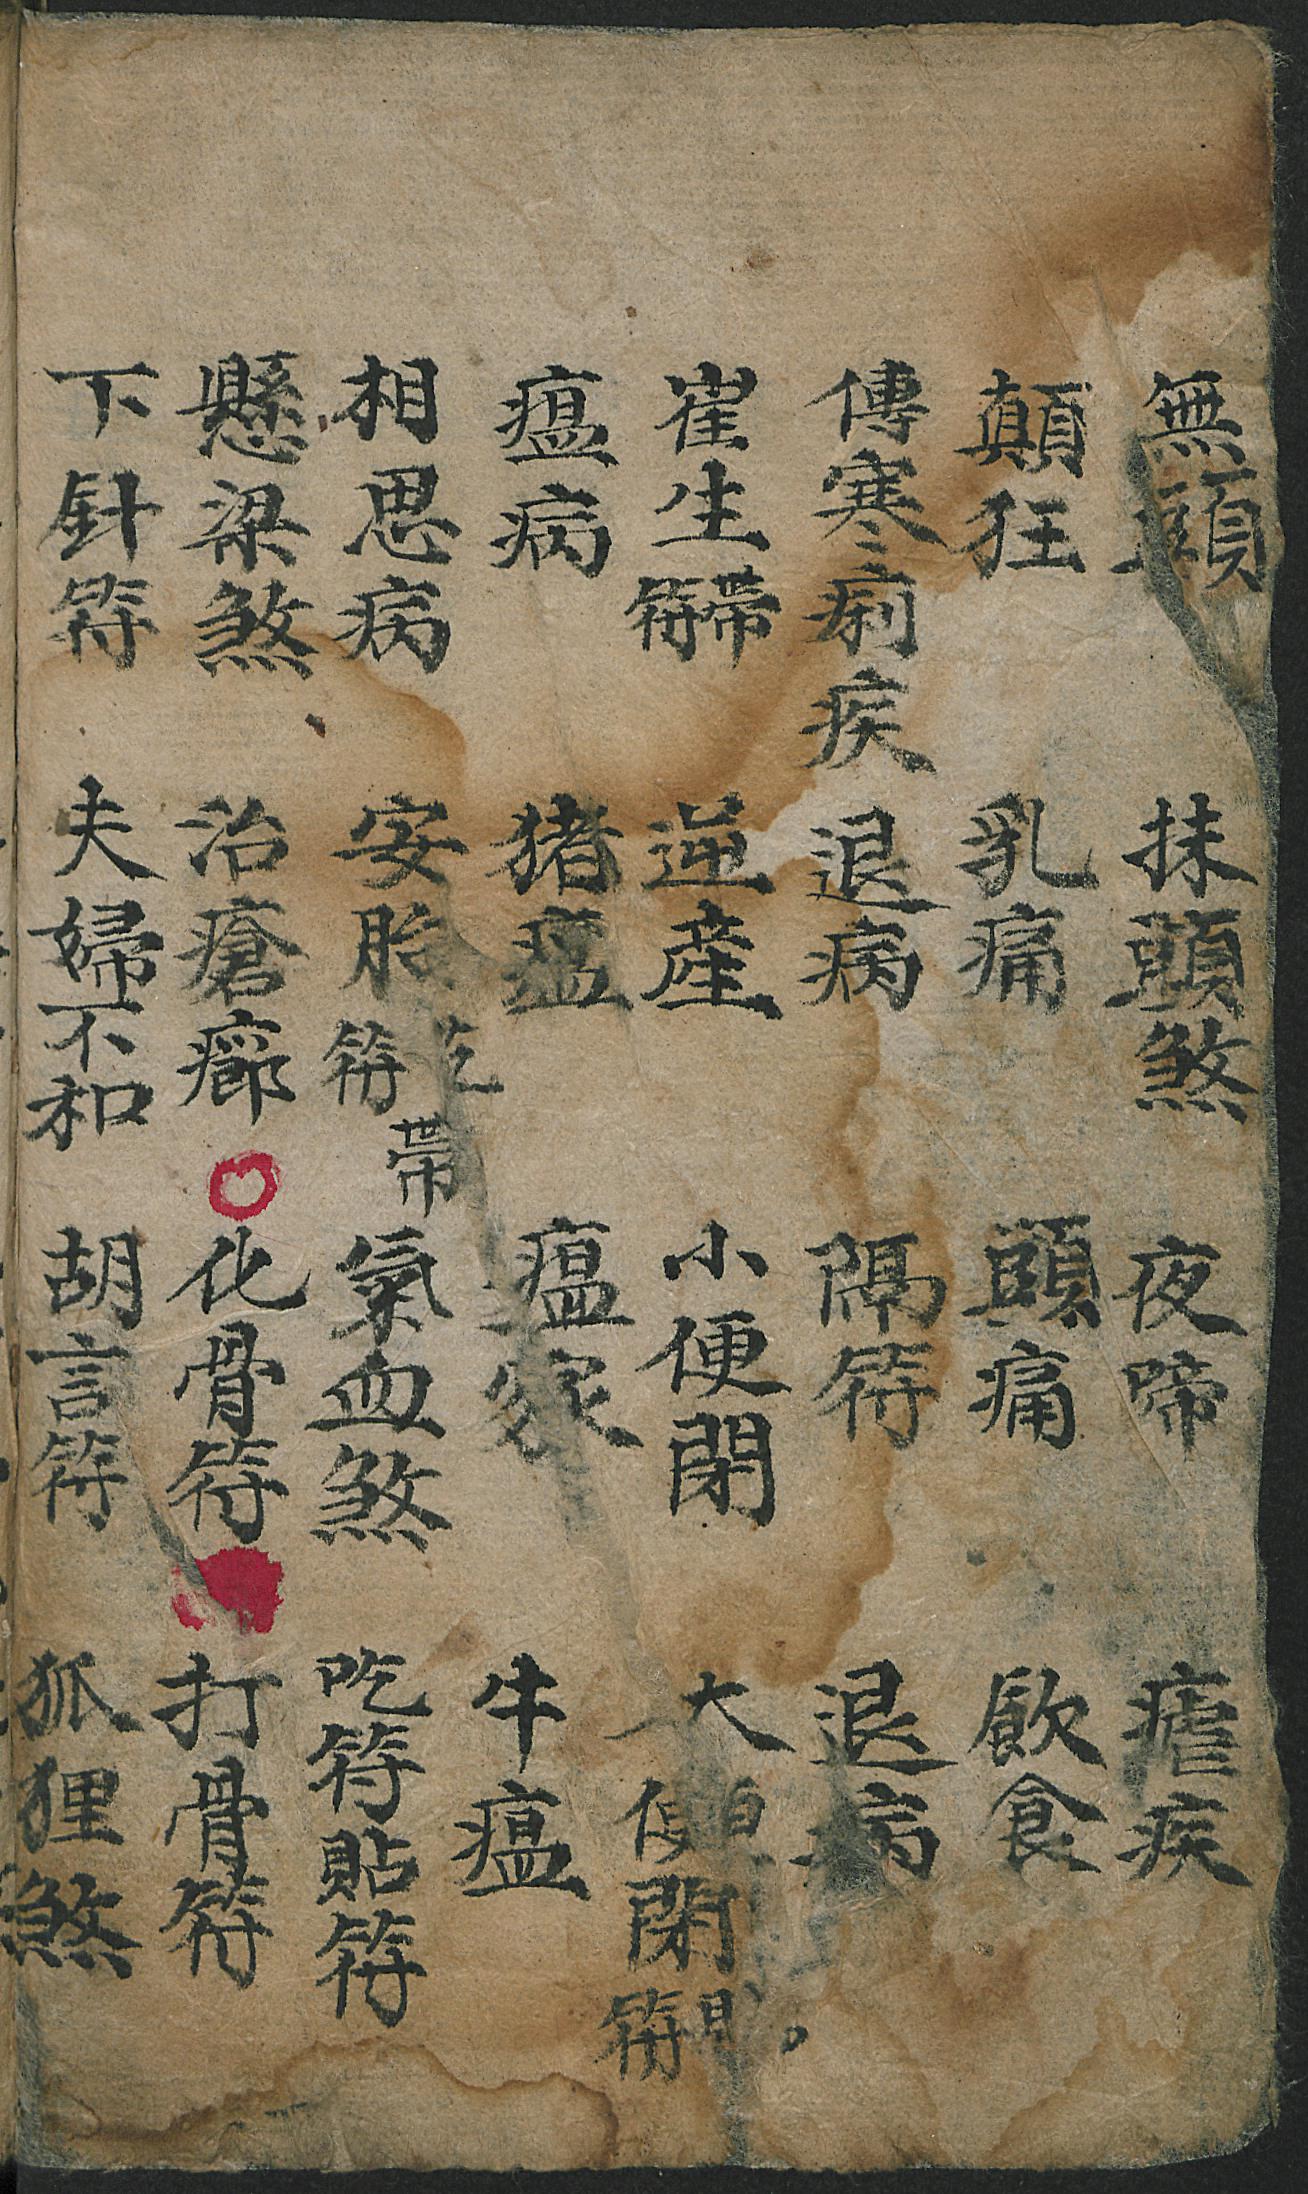 無頭 抹頭煞 夜啼 瘧疾
顛狂 乳痛 頭痛 飲食
傳寒痢疾 退病 隔符 退病
崔生帶符 逆產 小便閉 大便閉符
瘟病 猪瘟 瘟 牛瘟
相思病 安胎符吃帶 氣血煞 吃符貼符
懸梁煞 治瘡癤 化骨符 打骨符
下針符 夫婦不和 胡言符 狐狸煞